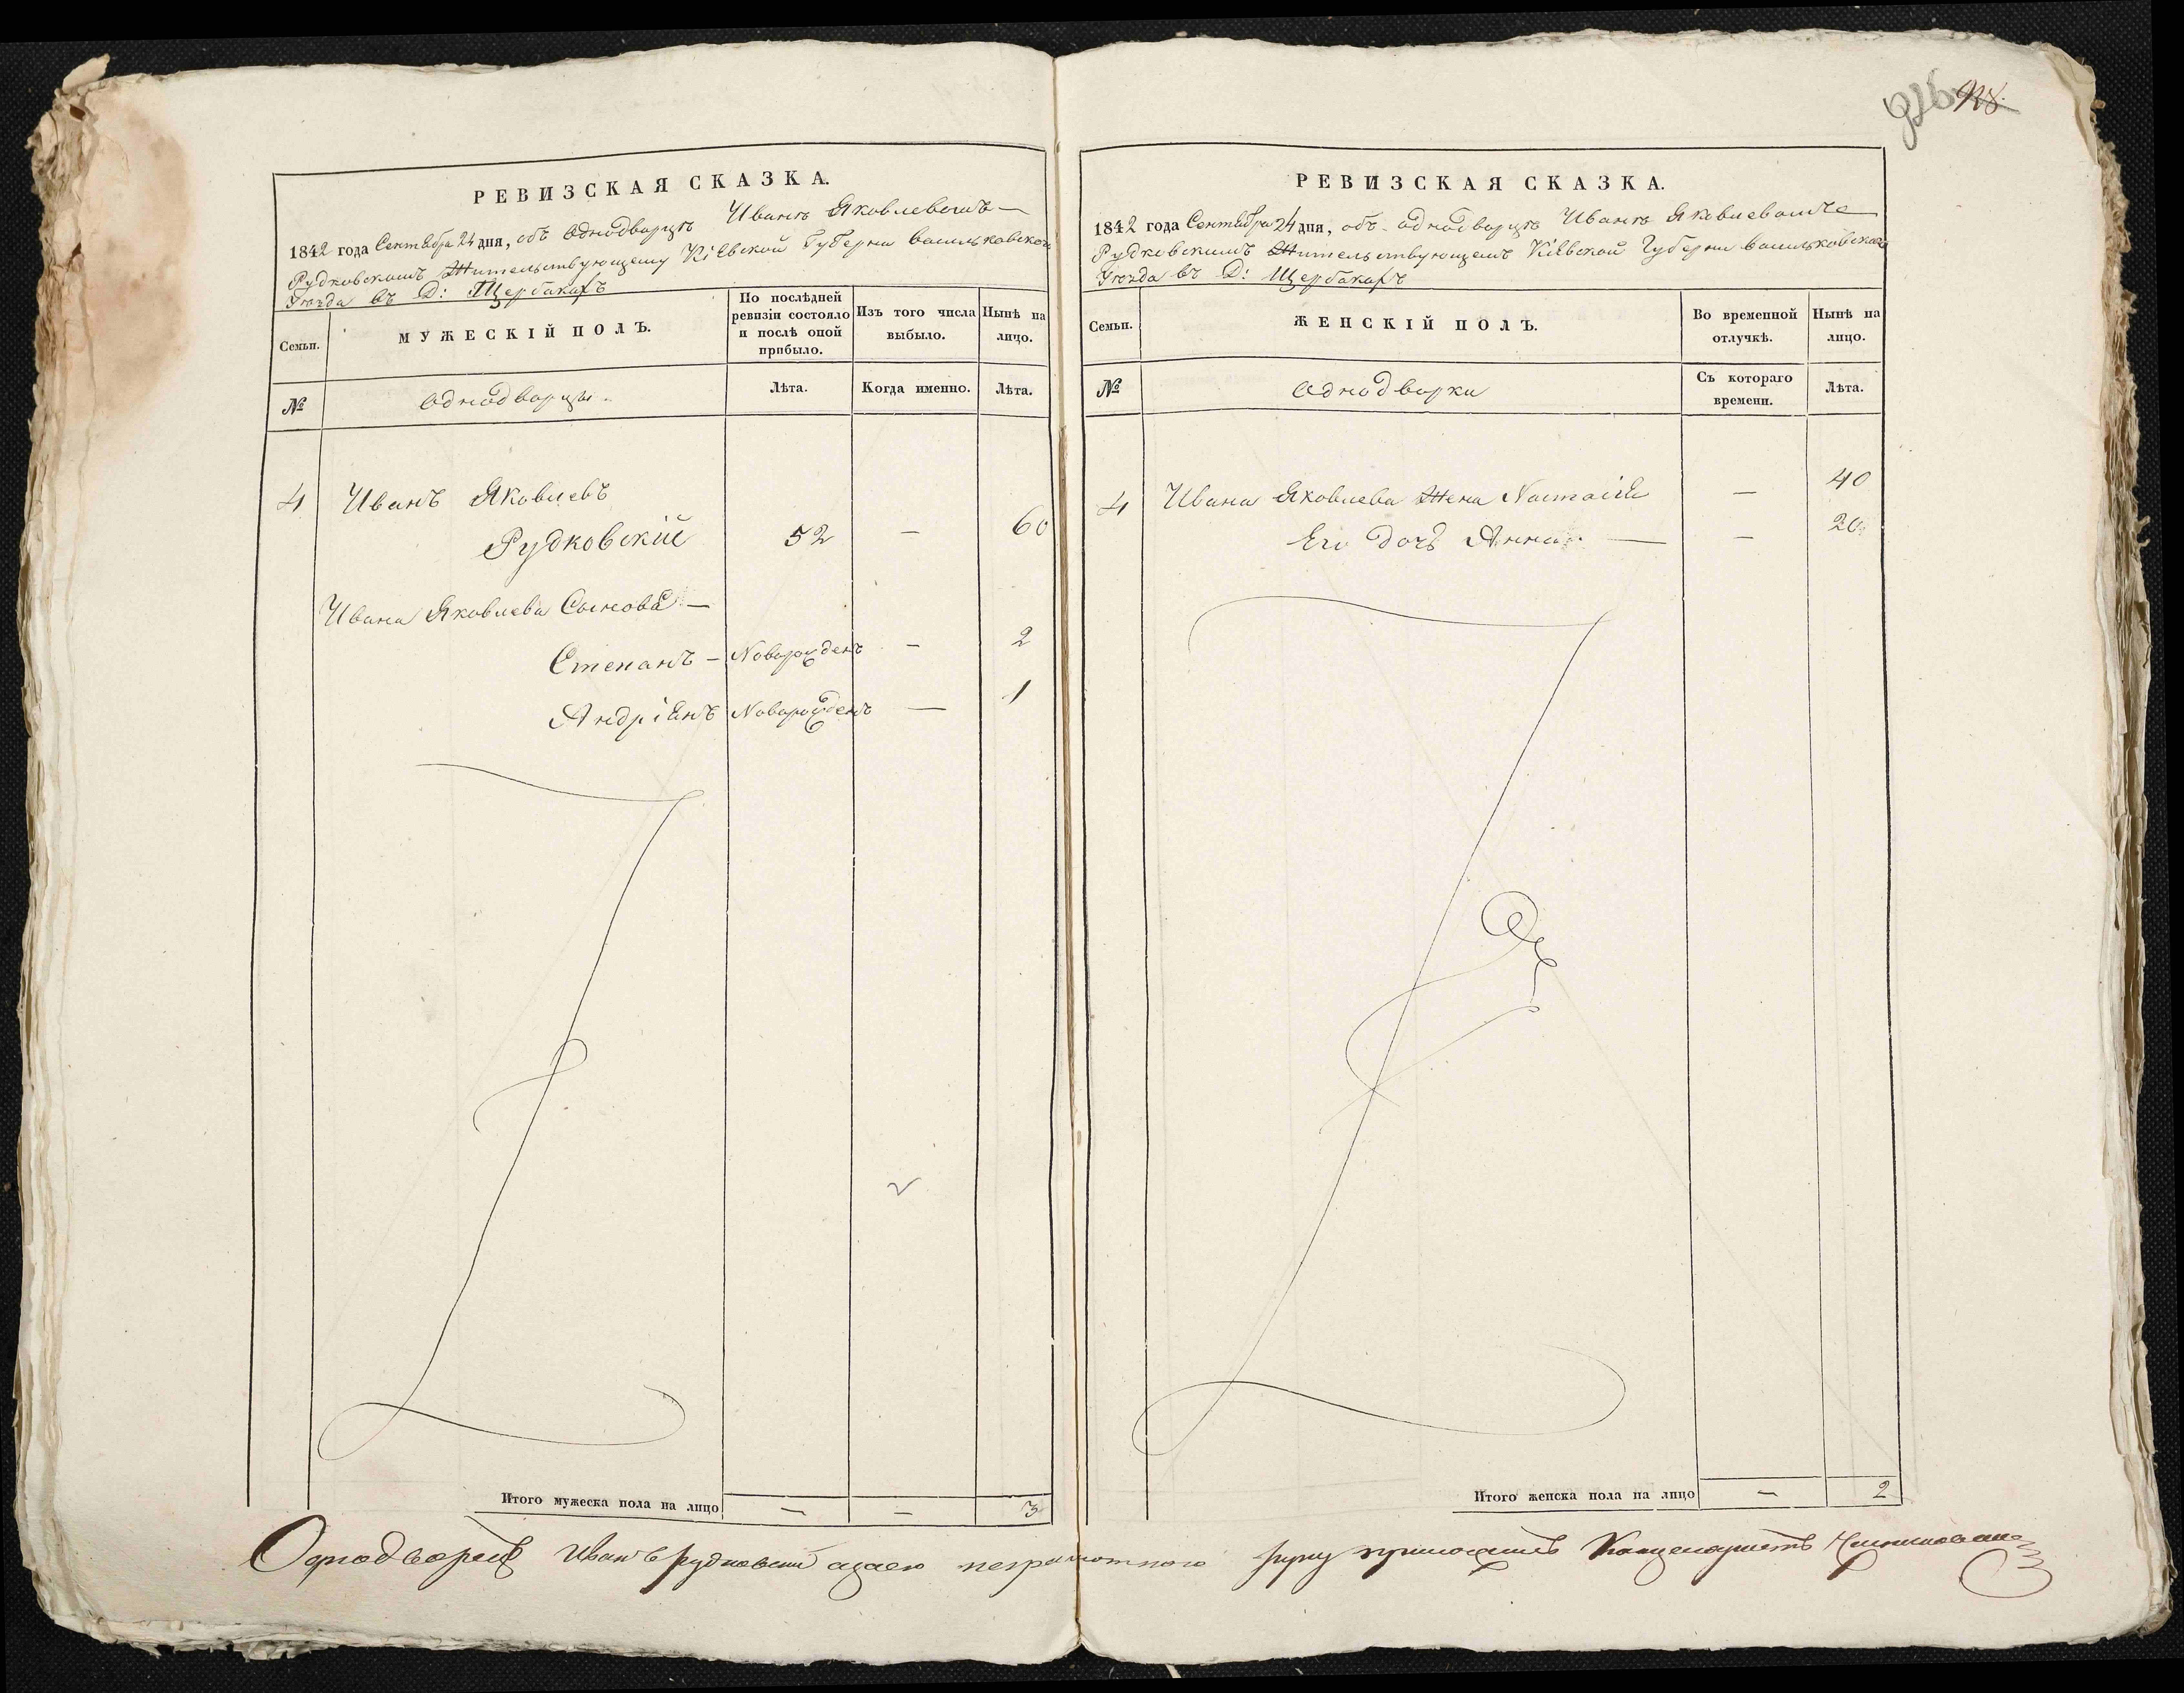 926 928.
РЕВИЗСКАЯ СКАЗКА.
1842 года Сентября 24 дня, объ Однодворцѣ Иванѣ Яковлевомъ —
Рудковскомъ Жительствующему Кіевской Губерни Васильковскаго
Уѣзда въ Д: Щербакахъ
Семьи.
МУЖЕСКІЙ ПОЛЪ.
По послѣдней ревизіи состояло и послѣ оной прибыло.
Изъ того числа выбыло.
Нынѣ на лицо.
№
Однодворцы.
Лѣта.
Когда именно.
Лѣта.
4 Иванъ Яковлевъ
Рудковскій 52 — 60
Ивана Яковлева Сыновья —
Степанъ — Новорожденъ — 2
Андріянъ Новорожденъ — 1
Итого мужеска пола на лицо — — 3
РЕВИЗСКАЯ СКАЗКА.
1842 года Сентября 24 дня, объ однодворцѣ Иванѣ Яковлевомъ
Рудковскимъ Жительствующемъ Кіевской Губерни Васильковскаго
Уѣзда въ Д: Щербакахъ
Семьи.
ЖЕНСКІЙ ПОЛЪ.
Во временной отлучкѣ.
Нынѣ на лицо.
№
Однодворки
Съ котораго времени.
Лѣта.
4 Ивана Яковлева Жена Настасія — 40
Его дочь Анна — — 20
Итого женска пола на лицо — 2
Однодворецъ Иванъ Рудковский а за его неграмотного руку приложилъ Канцеляристъ